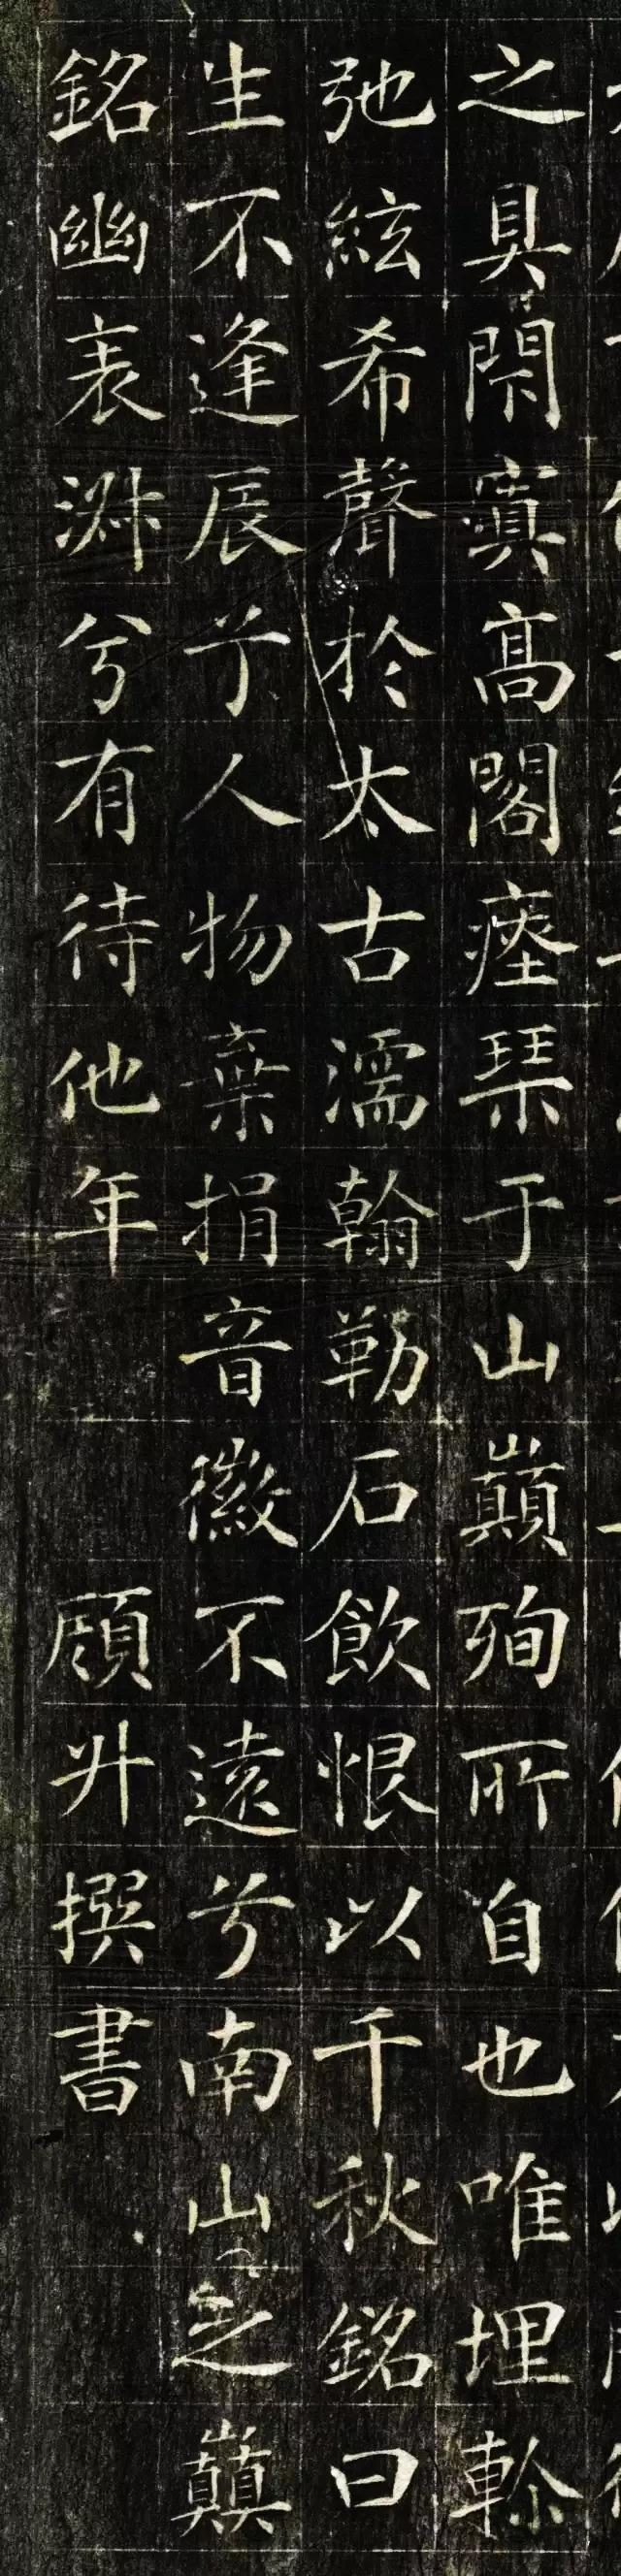 之具閑寘高閣瘞琹于山巔殉所自也唯埋軫
弛絃希聲於太古濡翰勒石飲恨以千秋銘曰
生不逢辰兮人物棄捐音徽不遠兮南山之巔
銘幽表淵兮有待他年 頋升撰書